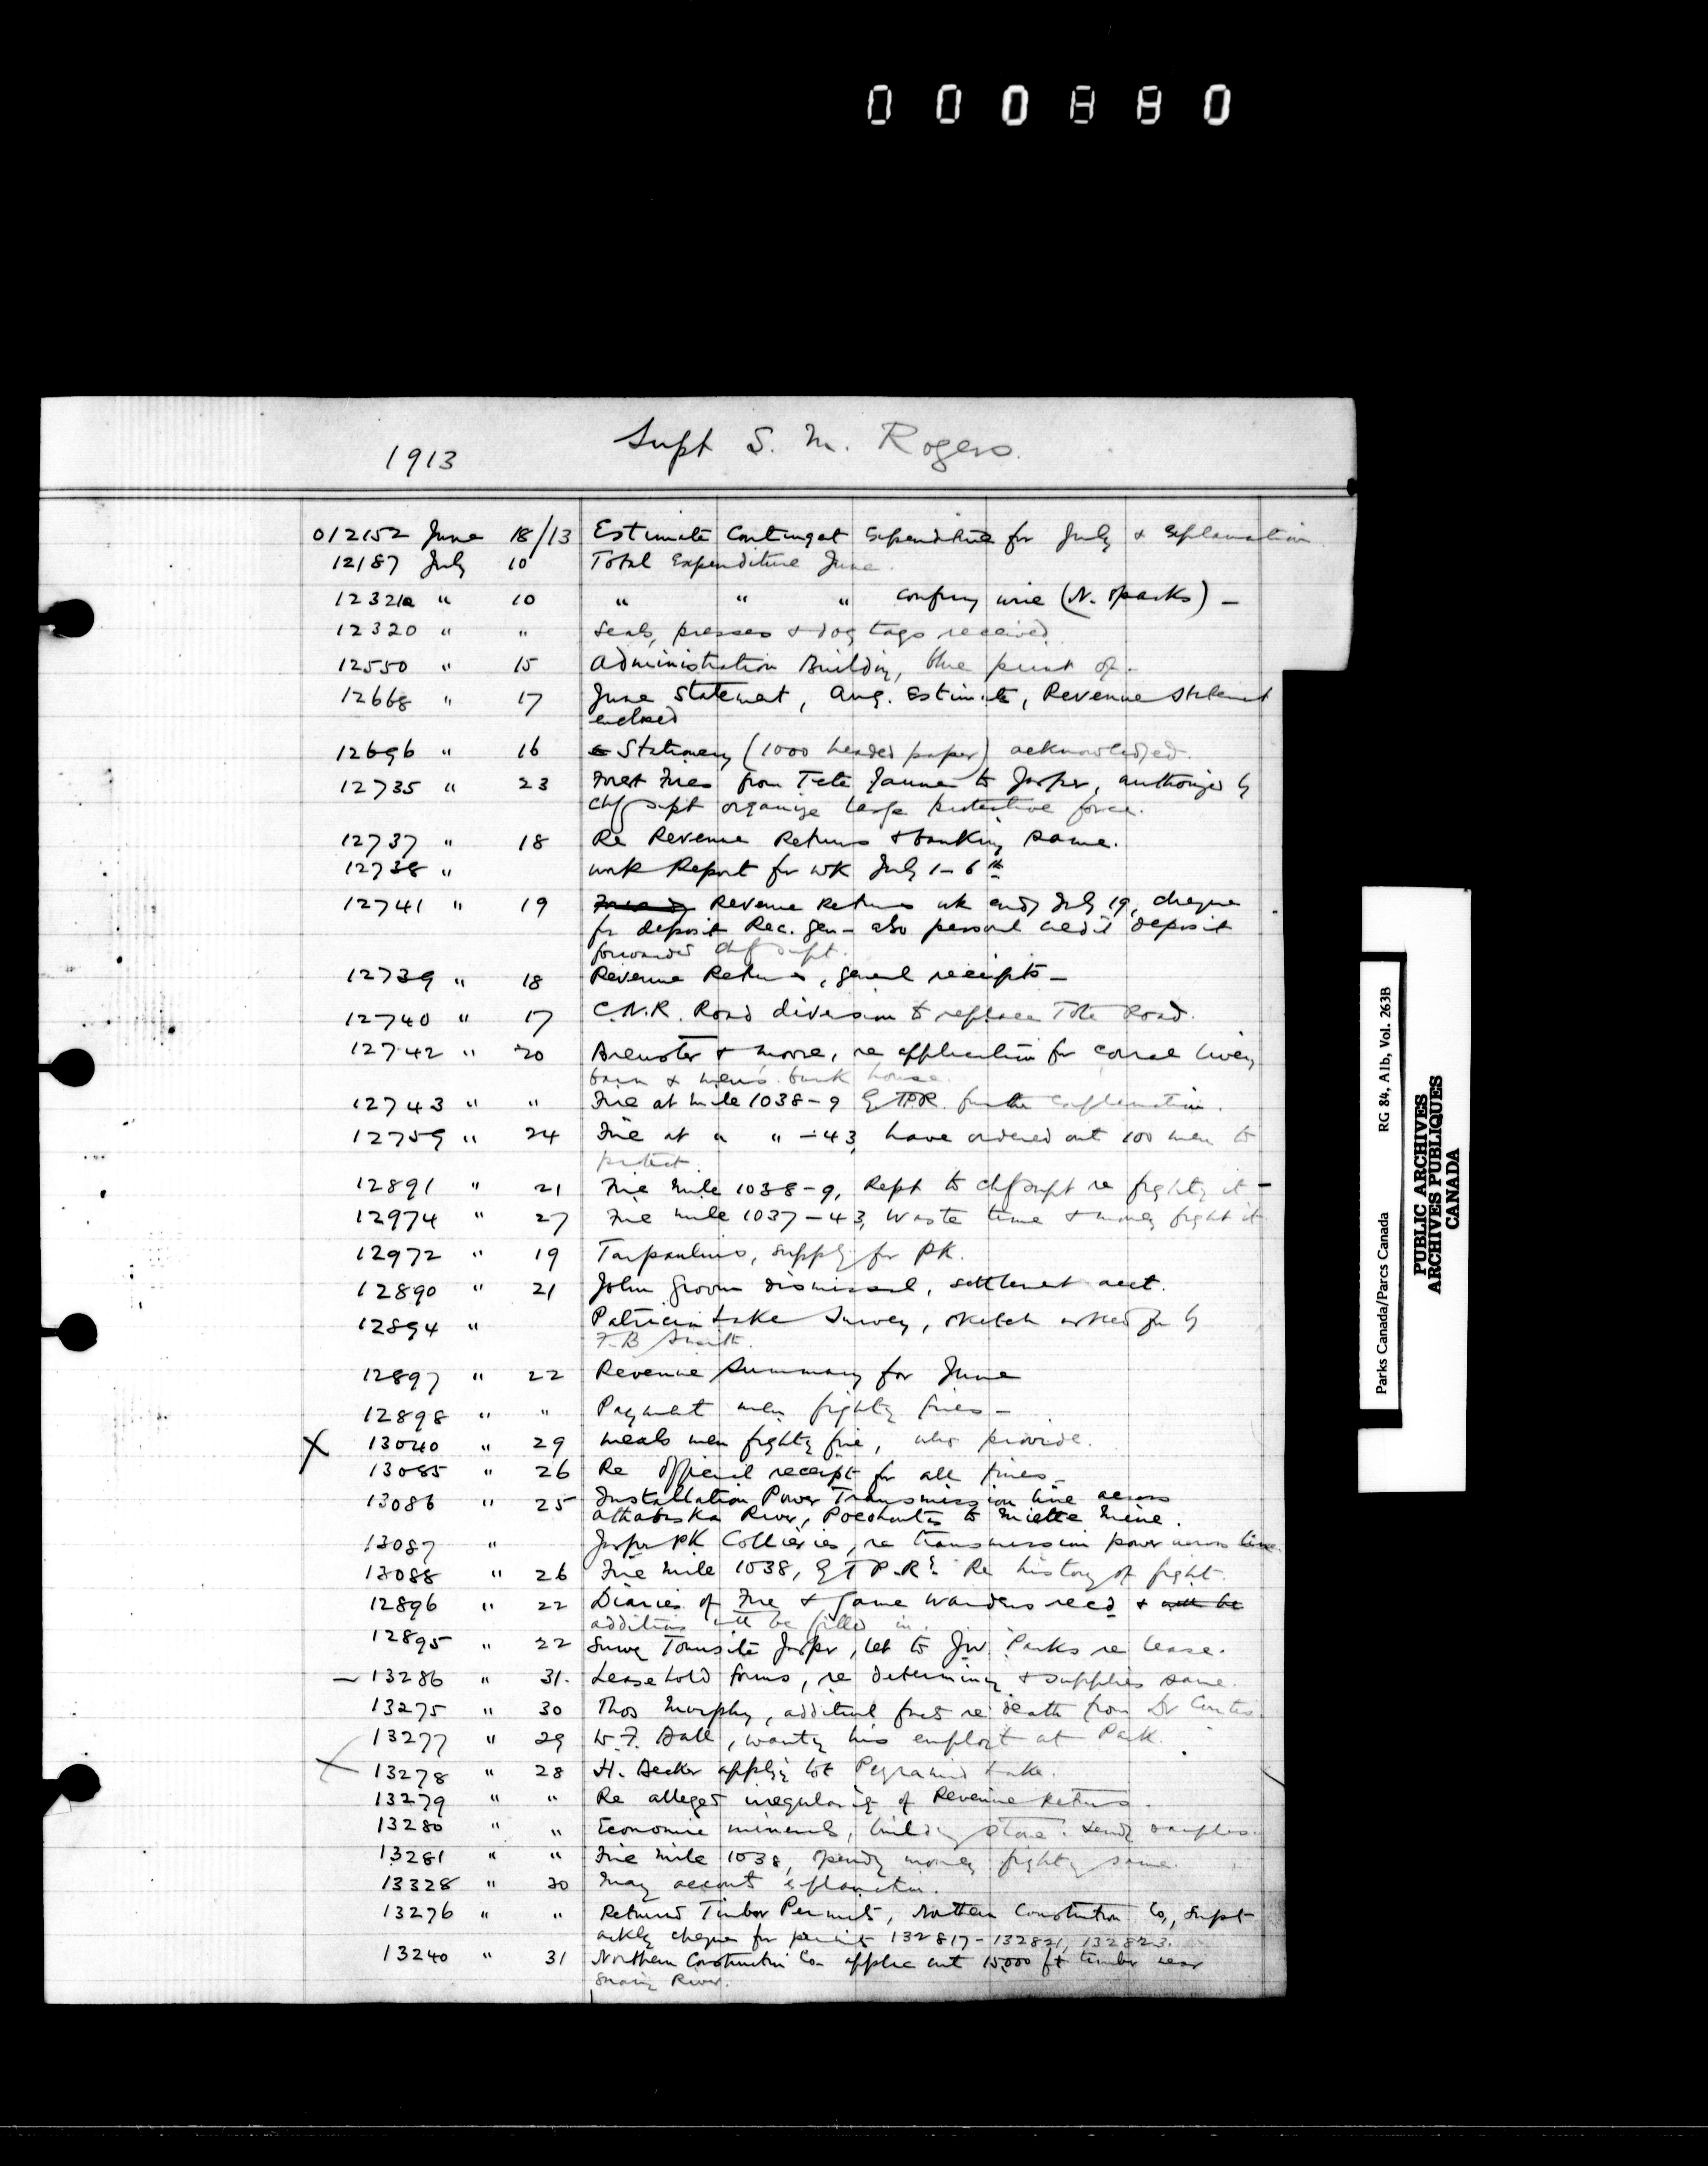 000880
1913 Supt S. M. Rogers.
012152 June 18/13 Estimate Contingat Expenditure for July & Explanation
12187 July 10 Total Expenditure June.
12321a " 10 " " " confirmg wire (N. Sparks) -
12320 " " Seals, presses & dog tags received.
12550 " 15 Administration Building, blue print of -
12668 " 17 June Statemat, Aug. Estimate, Revenue Statemet
enclosed
12696 " 16 Stationery (1000 headed paper) acknowledged.
12735 " 23 Forest Fires from Tete Jaune to Jasper, authorizes by
Chf Supt organize large protective force.
12737 " 18 Re Revenue Returns & banking same.
12738 " work Report for wk July 1-6th
12741 " 19 Revenue Returns wk endg July 19, cheque
for deposit Rec. Gen - also personal credit deposit
forwarded Chf Supt.
12739 " 18 Revenue Returns, general receipts -
12740 " 17 C.N.R. Road diversion to replace Tote Road.
12742 " 20 Brewster & Moore, re application for corral livery
barn & men's bunk house.
12743 " " Fire at mile 1038-9 G.T.P.R. further explanation.
12759 " 24 Fire at " " -43, have ordered out 100 men to
protect.
12891 " 21 Fire mile 1038-9, Rept to Chf Supt re fightg it -
12974 " 27 Fire mile 1037-43, Waste time & money fight it
12972 " 19 Tarpaulins, supply for PK.
12890 " 21 John Groom dismissal, settlemet acct.
12894 " Patricia Lake Survey, sketch asked for by
F.B Smith.
12897 " 22 Revenue Summary for June
12898 " " Paymet men fightg fires -
X 13040 " 29 Meals men fightg fire, who provide.
13085 " 26 Re official receipt for all fines -
13086 " 25 Installation Power Transmission line across
Athabaska River, Pocohontas to Miette Mine.
13087 " Jasper PK Collieries, re transmission power across line
13088 " 26 Fire mile 1038, G T P.R. Re history of fight.
12896 " 22 Diaries of Fire & Game Wardens recd & will be
additions will be filled in.
12895 " 22 Survey Townsite Jasper, let to Parks re lease.
- 13286 " 31. Lease hold forms, re determing & supplies same.
13275 " 30 Thos Murphy, additional facts re death from Dr
13277 " 29 W.F. Ball, wantg his employt at Park.
X 13278 " 28 H. Becker applyg lot Pyramid Lake.
13279 " " Re alleged irregularity of Revenue Returns.
13280 " " Economic minerals, buildg stone. sendg samples.
13281 " " Fire mile 1038, spendg money fightg same.
13328 " 30 May accounts explanation.
13276 " " Returned Timber Permits, Northern Construction Co., Supt
ackldg cheque for permits 132817-132821, 132823.
13240 " 31 Northern Construction Co applic cut 15,000 ft timber near
Snaring River.
Parks Canada/Parcs Canada RG 84, Alb, Vol. 263B
PUBLIC ARCHIVES
ARCHIVES PUBLIQUES
CANADA